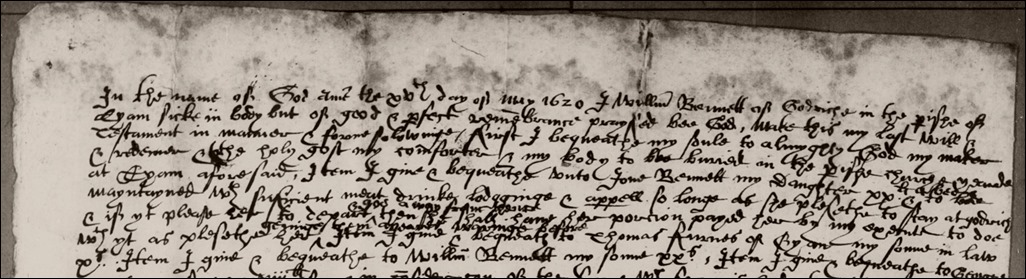 In the name of God Amē the xvth day of May 1620 I Willm̄ Bennett of Godriche in the pishe of
Eyam sicke in body but of good & pfect remēbrance praysed bee God, make this my last will &
Testament in manner & forme followinge, first I bequeathe my soule to almyghty God my maker
& redemer & the holy gost my comforter & my body to be buried in the pishe
at Eyam aforesaid, Item I give & bequeathe unto Jone Bennett my daughter xxli & to be
mayntayned wth suficient meat drinke lodginge & appell so longe as she plesethe to stay at godrich
& if yt please her to depart then shee shall have her porcion payed her by my executr to doe
wth yt as plesethe her, Item I give & bequeath to Thomas Furnes of Eyam my sonne in law
xs. Item I give & bequeathe to Willm̄ Bennett my sonne xxs, Item I give & bequeathe to George